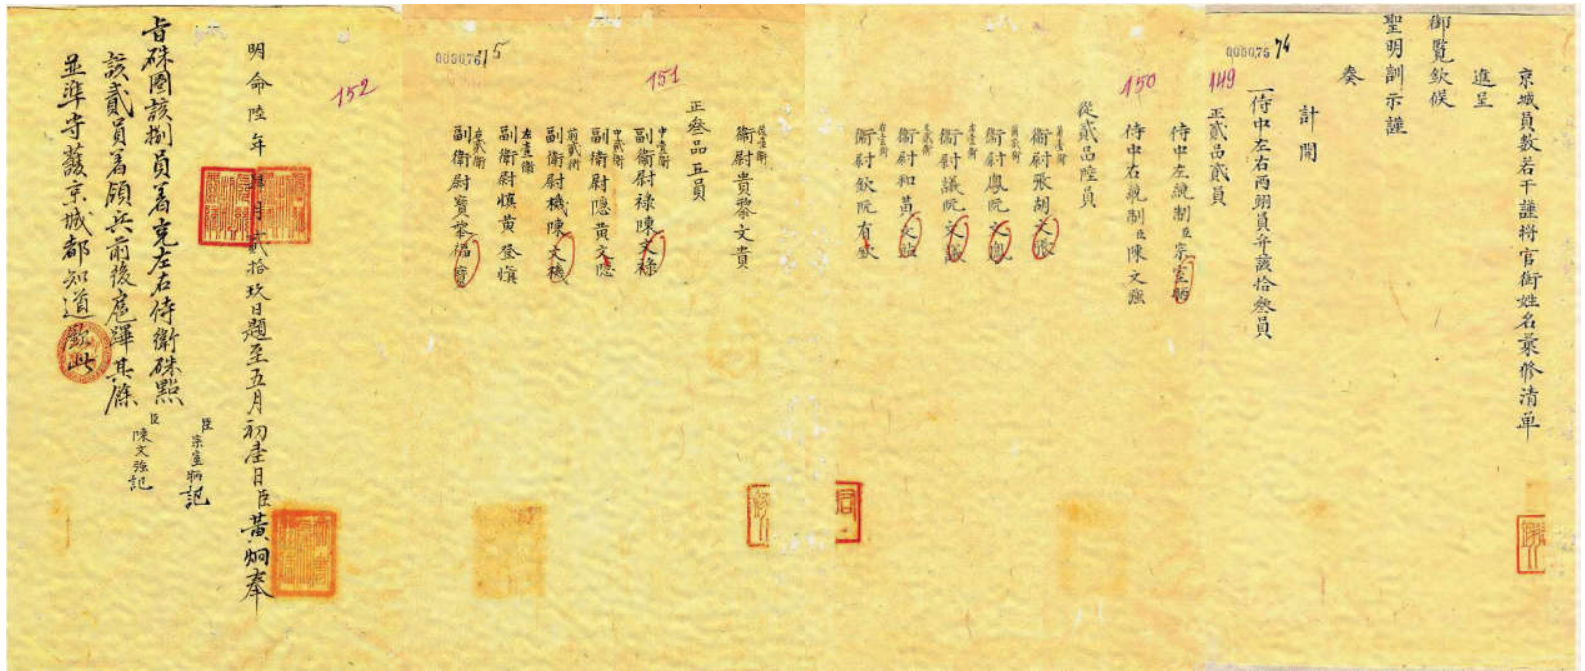 京城員數若干謹將官銜姓名彙修清單
進呈
御覧欽候
聖明訓示謹
奏
計開
000075 74
一侍中左右兩翊員弁該拾叁員
149
正貳品貳員
侍中左統制臣宗室
侍中右統制臣陳文強
150
從貳品陸員
前壹衛
衛尉張胡文張
前貳衛
衛尉粵阮文粵
左壹衛
衛尉議阮文議
左貳衛
衛尉和黃文
右壹衛
衛尉欽阮有欽
後壹衛
衛尉貴黎文貴
正叁品五員
151
中壹衛
副衛尉祿陳文祿
中貳衛
副衛尉隐黄文隐
前貳衛
副衛尉機陳文機
左壹衛
副衛尉慎黄登慎
右貳衛
副衛尉寶黎福寶
000076 75
152
明命陸年肆月貳拾玖日題至五月初壹日臣黃炯奉
旨硃圈該捌員着克左右侍衛硃點
該貳員着領兵前後扈蹕其餘
並準守護京城都知道欽此
臣宗室 記
臣陳文強記